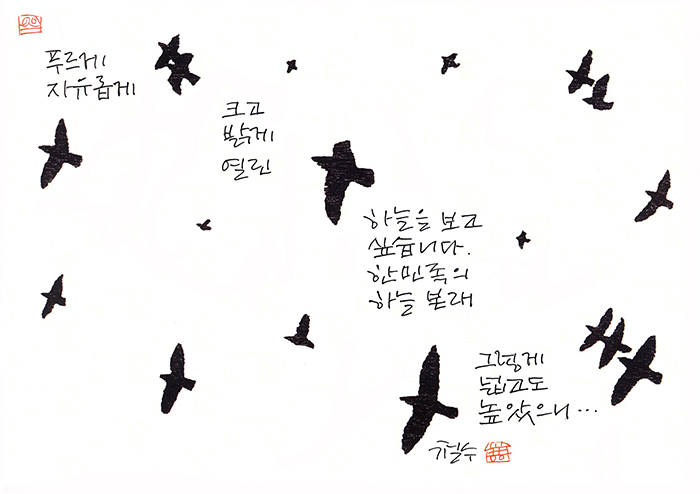 푸르게
자유롭게
크고
밝게
열린
하늘을 보고
싶습니다.
한민족의
하늘 본래
그렇게
넓고도
높았으니…
철수